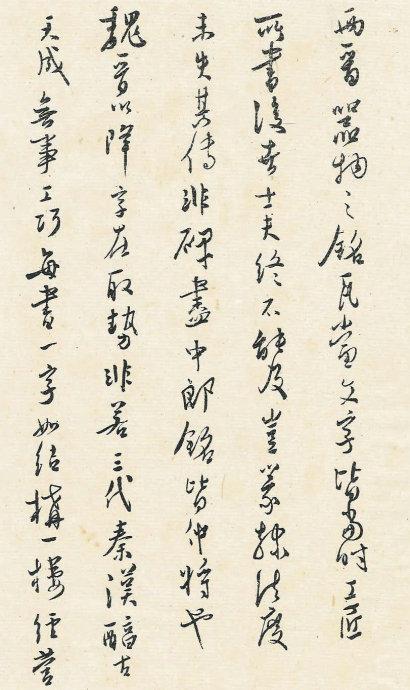 两晉器物之銘瓦當文字皆當時工匠
所書後士夫終不能及豈篆隸法度
未失其傳非碑盡中郎銘皆仲將也
魏晉以降字在取勢非若三代秦漢醇古
天成無事工巧每書一字如結構一樓經營